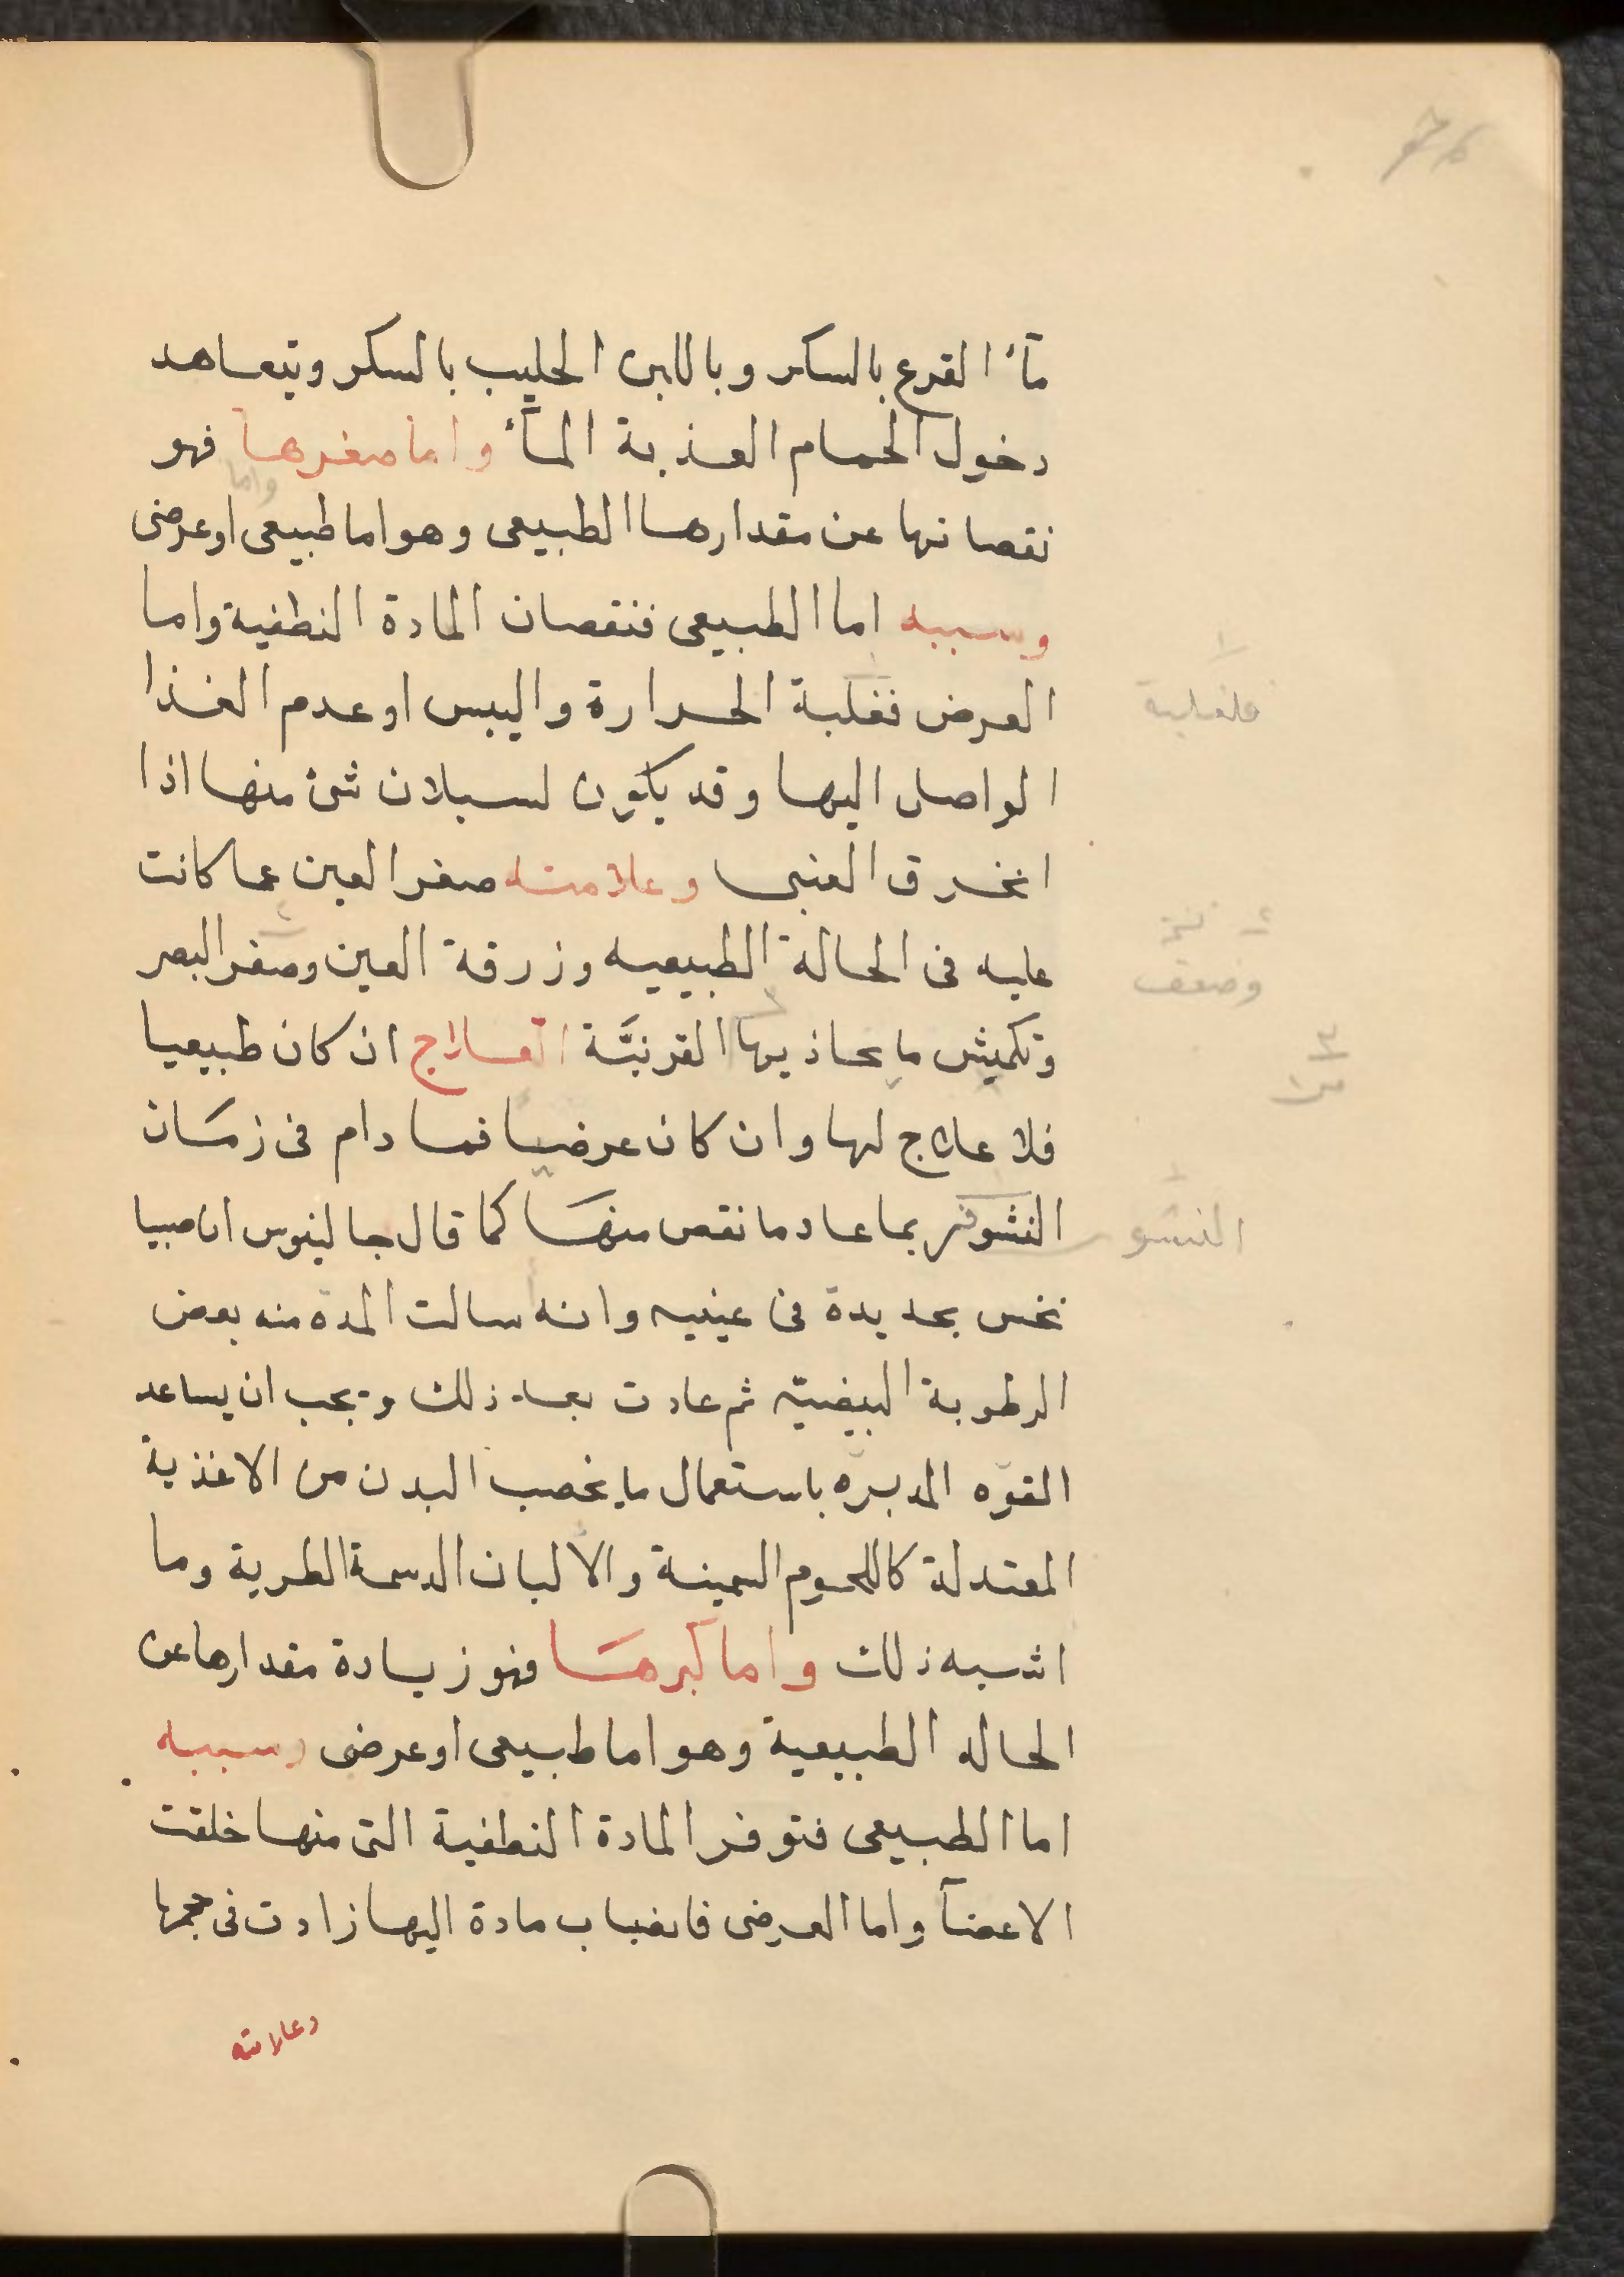 مآء القرع بالسكر وباللبن الحليب بالسكر ويتعاهد
دخول الحمام العذبة المآء واما صغرها فهو
واما
نقصانها عن مقدارها الطبيعى وهو اما طبيعى او عرضى
وسببه اما الطبيعى فنقصان المادة النطفية واما
العرض فغلبة الحرارة واليبس او عدم الغذا
فلغلبة
الواصل اليها وقد يكون لسيلان شئ منها اذا
انخرق العنبى وعلامته صغر العين عما كانت
عليه فى الحالة الطبيعيه وزرقة العين وصغر البصر
وضعف
وتكميش ما يحاذيها القرنيَّة العلاج ان كان طبيعيا
من
فلا علاج لها وان كان عرضيا فما دام فى زمان
النشو فربما عاد ما نقص منها كما قال جالينوس ان صبيا
النشو
نخس بحديدة فى عينيه وانه سالت المدة منه بعض
الرطوبة البيضيّه ثم عادت بعد ذلك ويجب ان يساعد
القوّه المدبره باستعمال ما يخصب البدن من الاغذية
المعتدلة كاللحوم السمينة والالبان الدسمة الطرية وما
اشبه ذلك واما كبرها فهو زيادة مقدارها عن
الحاله الطبيعية وهو اما طبيعى او عرضى وسببه
اما الطبيعى فتوفر المادة النطفية التى منها خلقت
الاعضآ واما العرضى فانصباب مادة اليها زادت فى حجمها
وعلامته